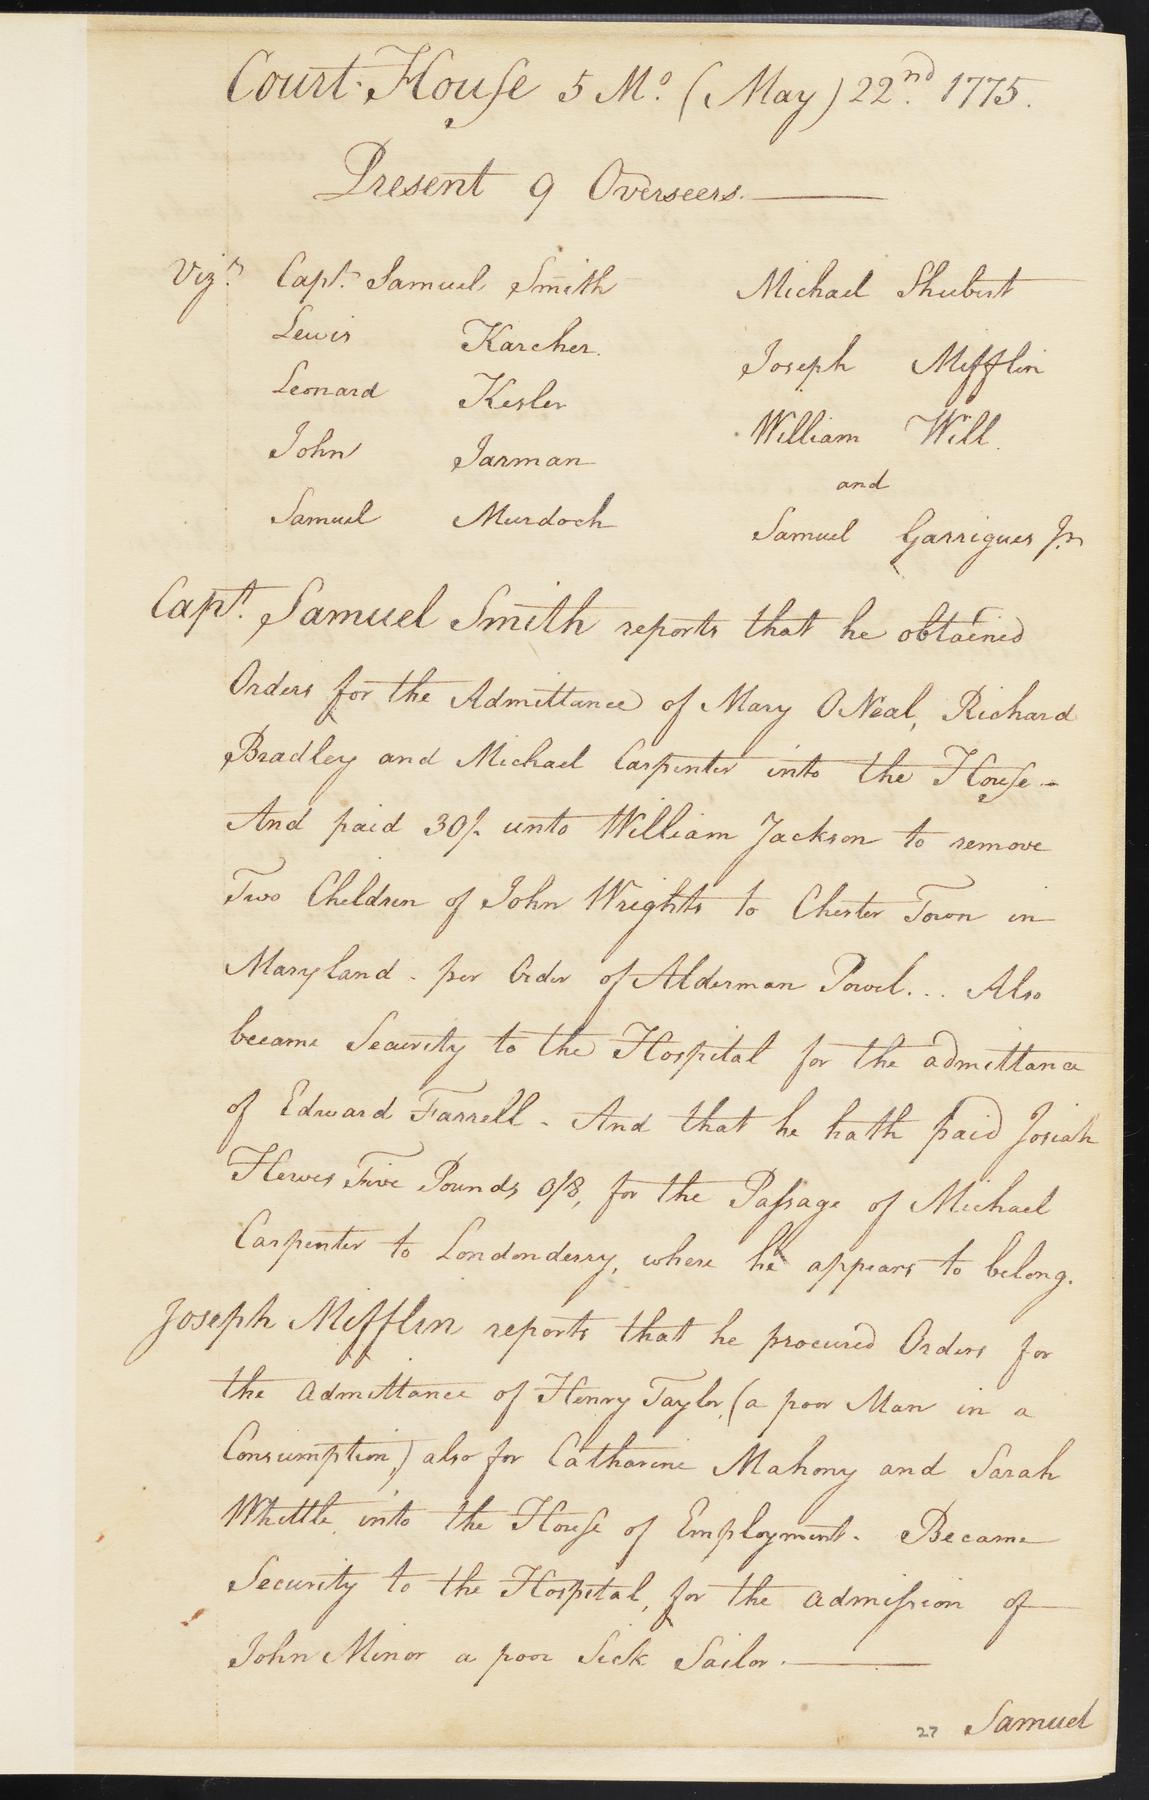 Court-House 5 Mo. (May) 22nd. 1775.
Present 9 Overseers.
Vizt. Capt. Samuel Smith Michael Shubert
Lewis Karcher. Joseph Mifflin
Leonard Kesler William Will.
John Jarman and
Samuel Murdoch Samuel Garrigues Jr
Capt. Samuel Smith reports that he obtained
Orders for the Admittance of Mary ONeal, Richard
Bradley and Michael Carpenter into the House.-
And paid 30/- unto William Jackson to remove
Two Children of John Wrights to Chester Town in
Maryland - per Order of Alderman Powel... Also
became Security to the Hospital for the admittance
of Edward Farrell - And that he hath paid Josiah
Hewes Five Pounds 0/8, for the Passage of Michael
Carpenter to Londonderry, where he appears to belong.
Joseph Mifflin reports that he procured Orders for
the Admittance of Henry Taylor, (a poor Man in a
Consumption,) also for Catharine Mahony and Sarah
Whittle into the House of Employment. Became
Security to the Hospital, for the admission of
John Minor a poor Sick Sailor.
27 Samuel